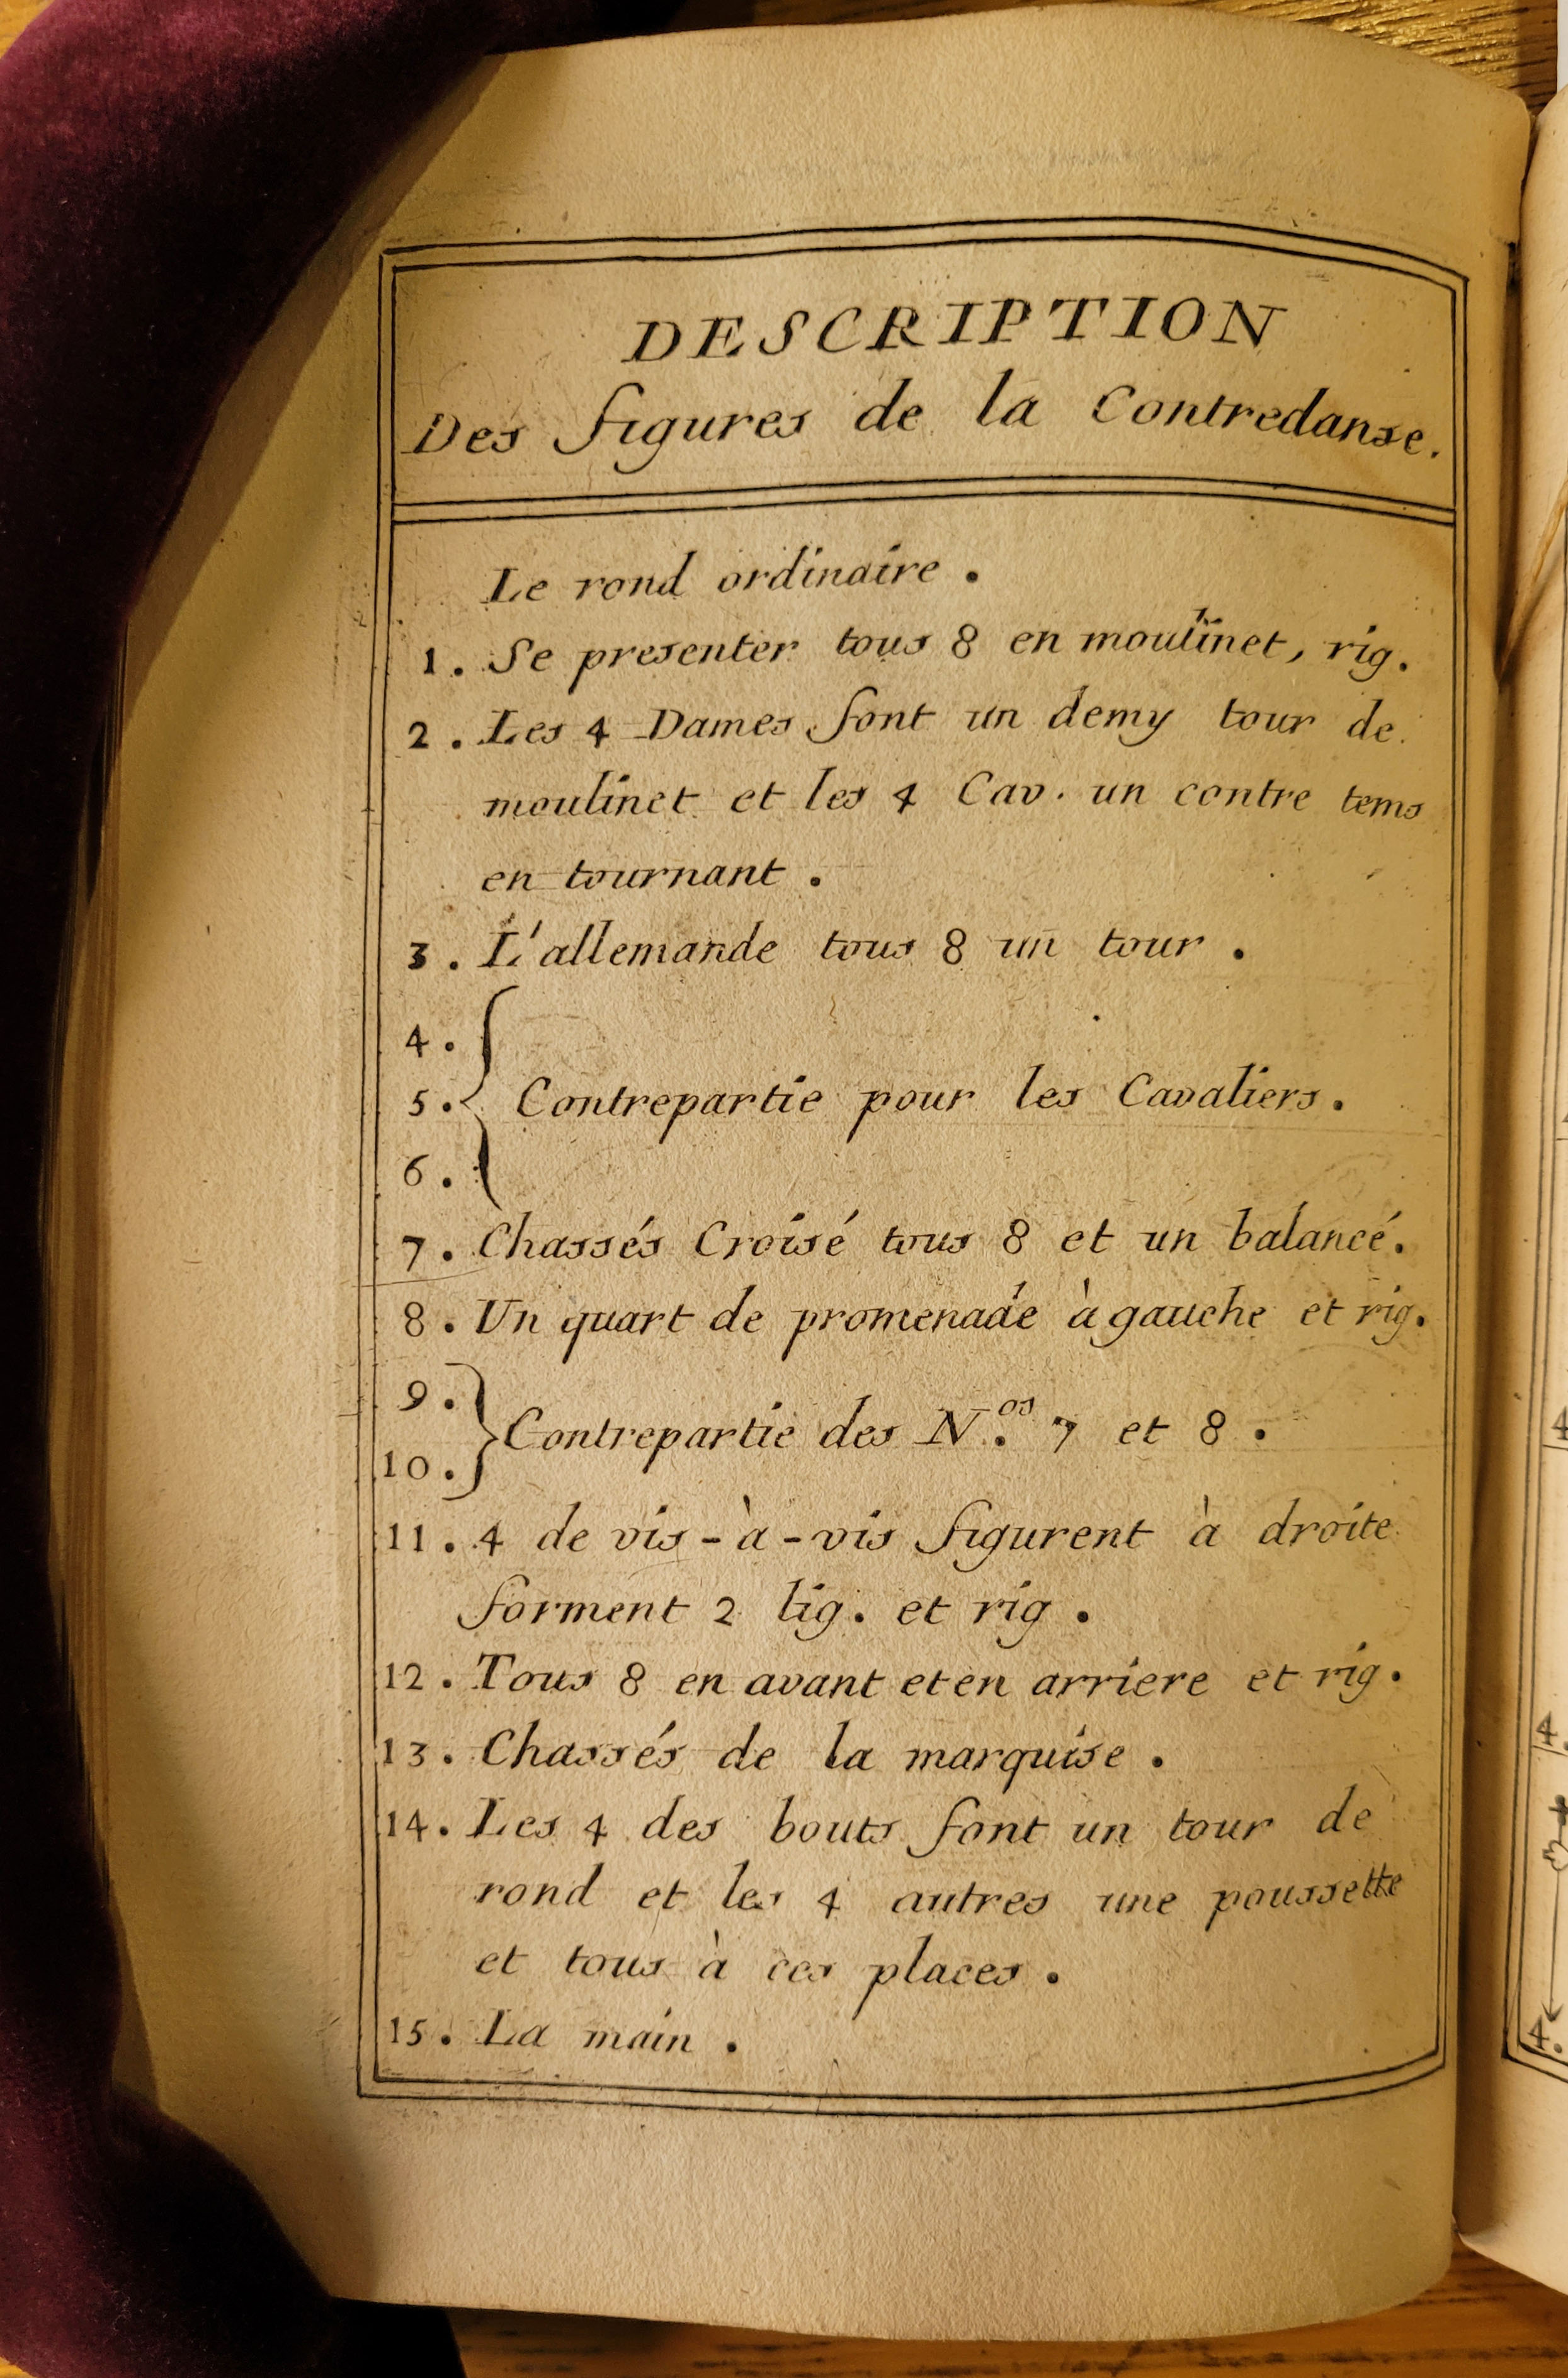 DESCRIPTION
Des figures de la Contredanse.
Le rond ordinaire.
1. Se presenter tous 8 en moulinet, rig.
2. Les 4 Dames font un demy tour de
moulinet et les 4 Cav. un contre tems
en tournant.
3. L'allemande tous 8 un tour.
4.
5. Contrepartie pour les Cavaliers.
6.
7. Chassés Croisé tous 8 et un balancé.
8. Un quart de promenade à gauche et rig.
9.
Contrepartie des N.os 7 et 8.
10.
11. 4 de vis-à-vis figurent à droite
forment 2 lig. et rig.
12. Tous 8 en avant et en arriere et rig.
13. Chassés de la marquise.
14. Les 4 des bouts font un tour de
rond et les 4 autres une poussette
et tous à ces places.
15. La main.
4
4.
4.